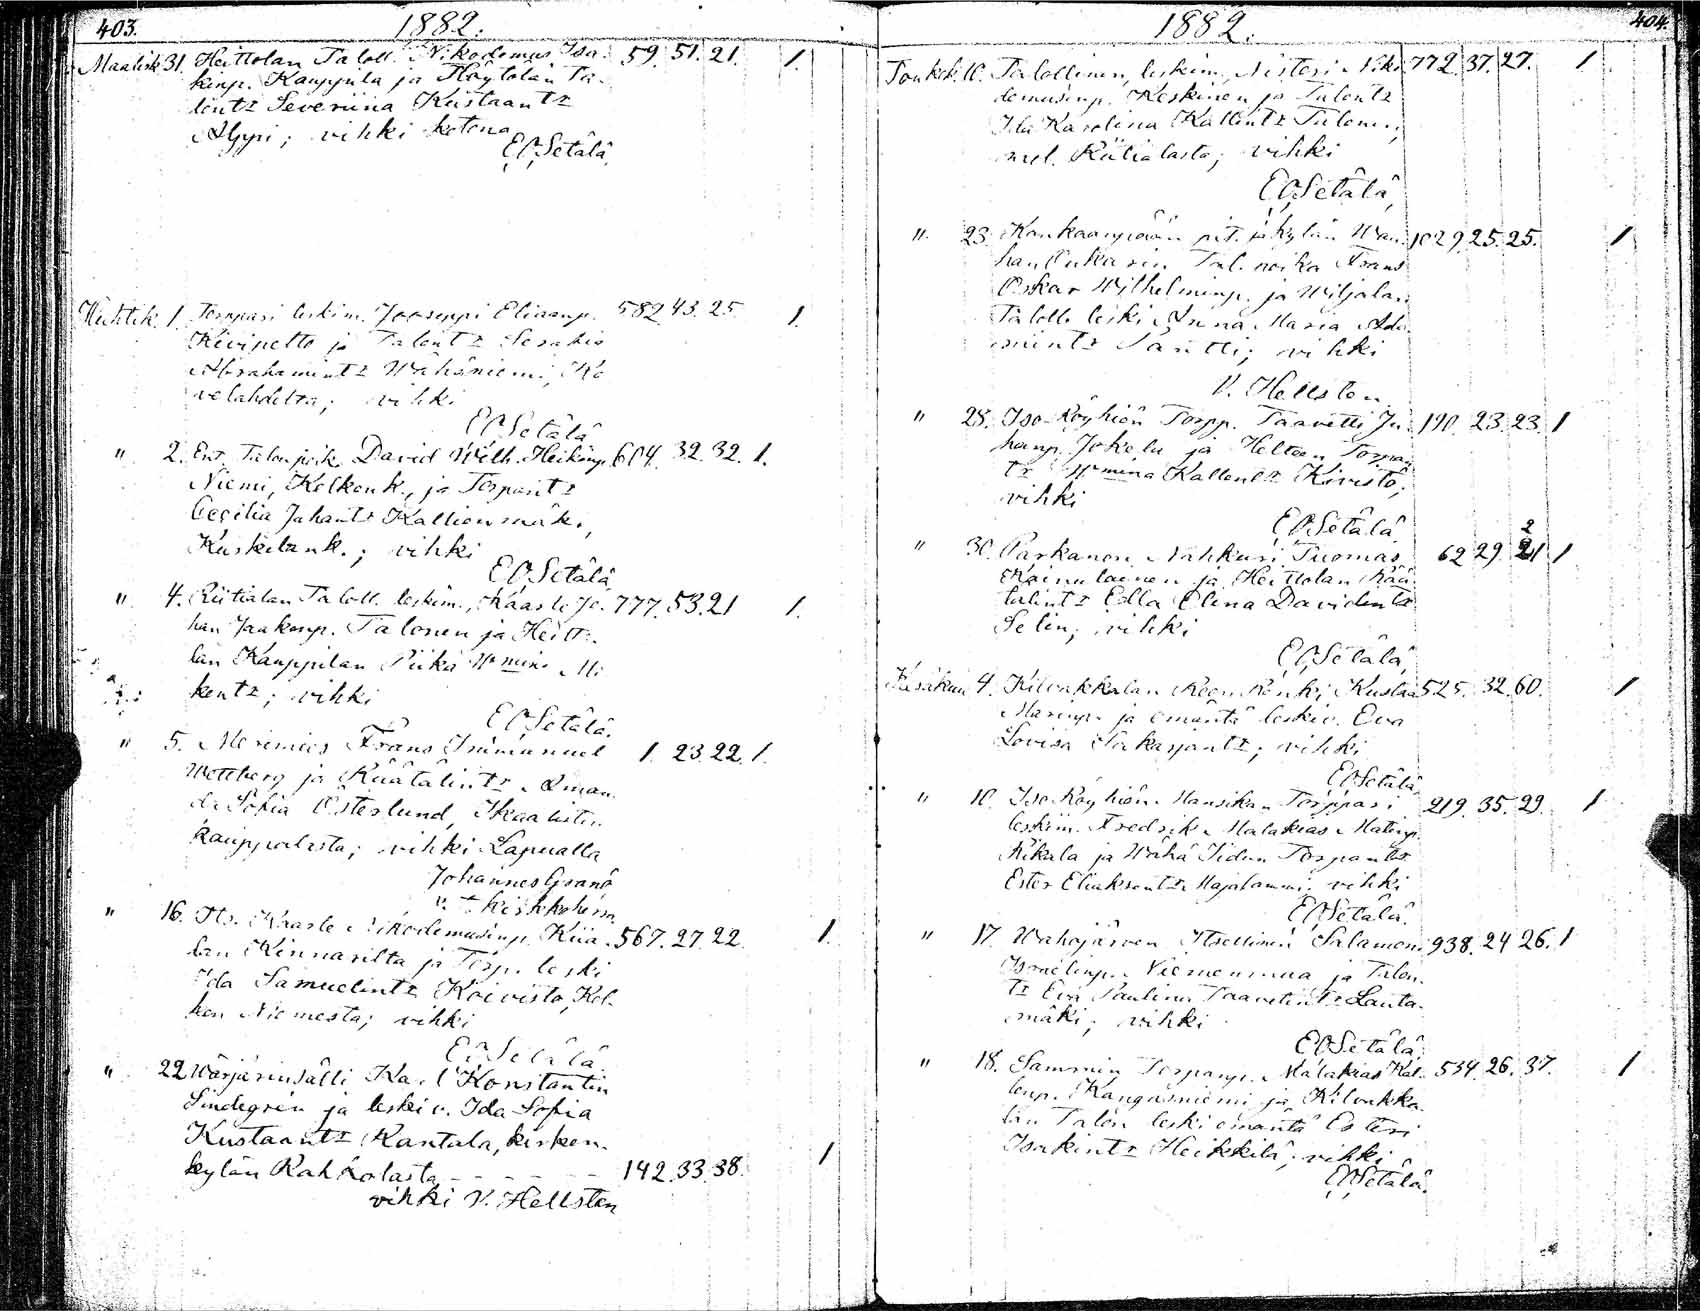 403.
1882.
Maalisk 31. Heittolan Taloll. Nikodemus Isa- 59. 51. 21. 1.
kinp. Kauppila ja Höytölän Ta-
lont:r Severiina Kustaant:r
Alppi; vihki kotona
E O Setälä,
Huhtik. 1. Torppari leskim. Jooseppi Eliaanp. 582. 43. 25. 1.
Kivipelto ja Talont:r Serahia
Abrahamint:r Wähäniemi, Ko
velahdelta; vihki
E O Setälä
" 2. Ent. Talon poik. David Wilh. Heikinp. 604. 32. 32. 1.
Niemi, Kolkonk., ja Torparint:r
Cecilia Juhant:r Kallionmäki,
Kuskilank.; vihki
E O Setälä
" 4. Riitialan Taloll. leskim., Kaarle Jo- 777. 53. 21 1.
han Jaakonp. Talonen ja Heitto-
lan Kauppilan Piika Wmina Mi
kent:r; vihki
E O Setälä.
" 5. Merimies Frans Immanuel 1. 23. 22. 1.
Wettberg ja Räätälint:r Aman-
da Sofia Österlund, Ikaalisten
kauppalasta; vihki Lapualla
Johannes Granö
v. t. kirkkoherra
" 16. Its. Kaarle Nikodemusinp. Riia- 567. 27. 22. 1.
lan Kinnarilta ja Torp. leski
Ida Samuelint:r Koivisto, Kol-
kon Niemestä; vihki
E O Setälä.
" 22. Wärjärinsälli Karl Konstantin
Lindegrén ja leskiv. Ida Sofia
Kustaant:r Rantala, kirkon-
kylän Rahkolasta 142. 33. 38. 1
vihki V. Hellsten
404.
1882.
Toukok. 10. Talollinen, leskim., Nestori Niko 772. 37. 27. 1
demusinp. Keskinen ja Talont:r
Ida Karolina Kallent:r Talonen,
mol. Riitialasta; vihki
E O Setälä,
" 23. Kankaanpään pit. ja kylän Wan- 1029. 25. 25. 1
han Tal. poika Frans
Oskar Wilhelminp. ja Wiljalan
Talolli leski Anna Maria Ada
mint:r Santti; vihki
V. Hellsten
" 28. Iso-Röyhiön Torpp. Taavetti Ju- 190. 23. 23. 1
hanp. Jokela ja Heltoon Torpan
t:r Wmina Kallent:r Kivistö;
vihki
E O Setälä.
" 30. Parkanon Nahkuri Tuomas 62 29. 21 1
2
Kainulainen ja Heittolan Rää-
talint:r Edla Elina Davidint:r
Selin; vihki
E O Setälä,
Kesäkuu 4. Kilvakkalan Renki Kustaa 525. 32. 60. 1
ja emäntä leskiv. Eva
Lovisa Sakarjant:r; vihki
E O Setälä
" 10. Iso Röyhiön Mansikan Torppari 219. 35. 29. 1
leskim. Fredrik Malakias Matinp.
Rikala ja Wähä Torpant:r
Ester Eliaksent:r Majalammi; vihki
E O Setälä.
" 17. Wahojärven Itsellinen Salamon 938. 24 26. 1
Ismelinp. Niemenmaa ja Talon-
t:r Eva Paulina Taavetint:r Lauta-
mäki; vihki
E O Setälä.
" 18. Sammin Torparip. Malakias Kal- 534. 26. 37. 1
lenp. Kangasniemi ja Kilvakka-
lan Talon leski emäntä Esteri
Isakint:r Heikkilä; vihki
E O Setälä.